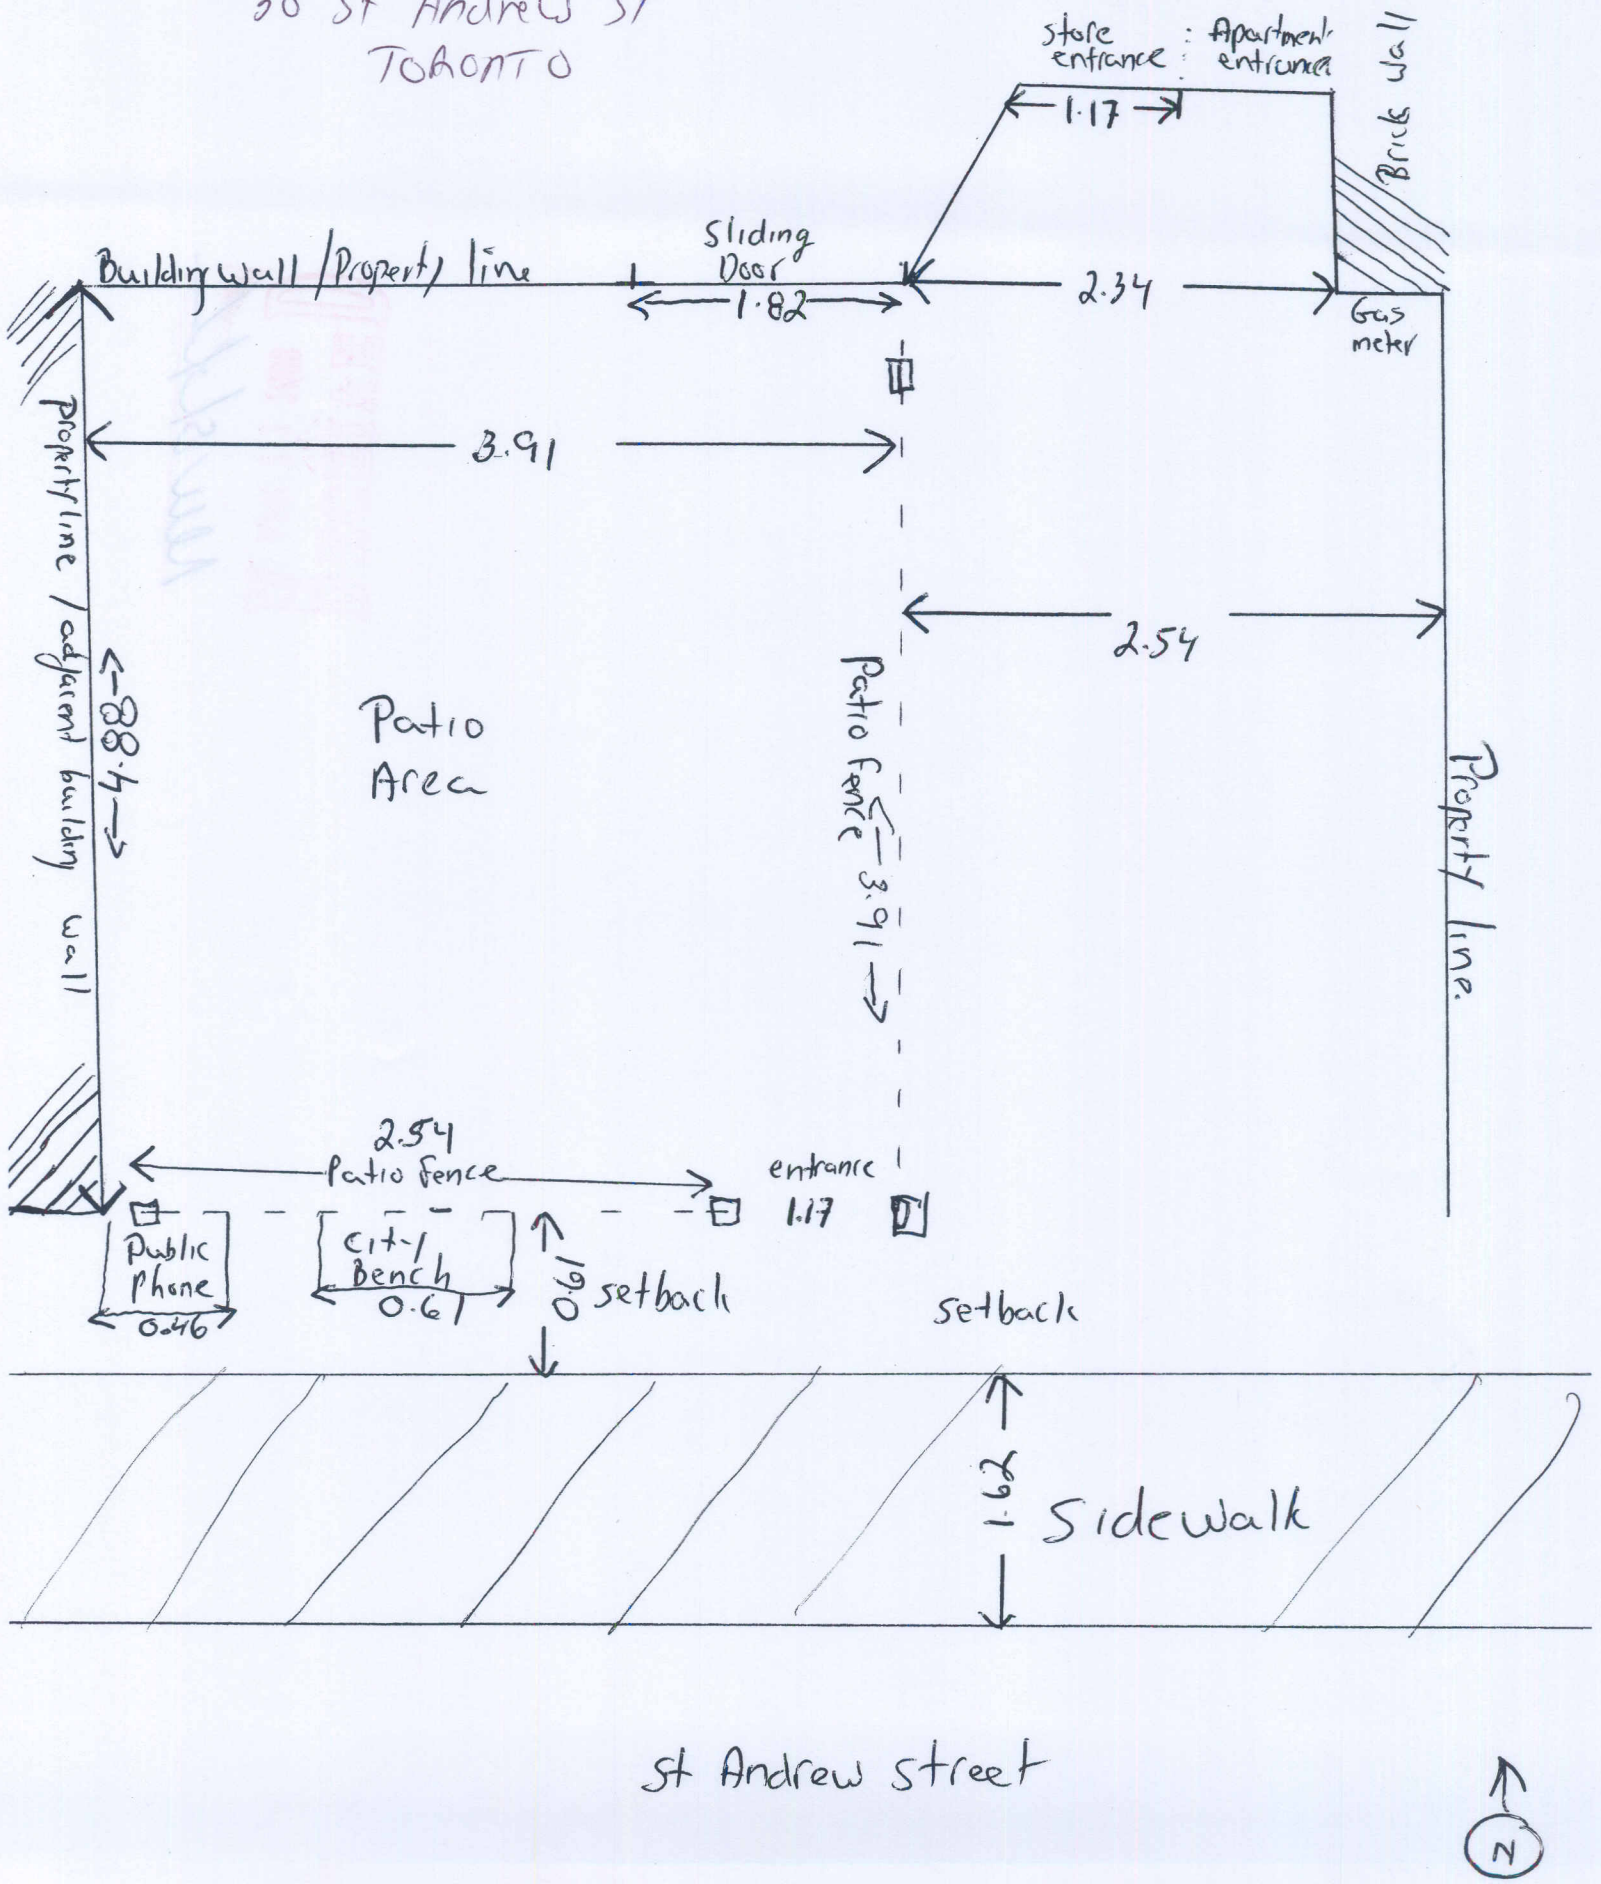 St Andrews St
TORONTO
store : Apartment
entrance : entrance
Brick wall
1.17
Building wall / Property line
Sliding
Door
1.82
2.34
Gas
meter
3.91
property line / adjacent building wall
4.88
2.54
Patio
Area
Patio fence
3.91
Property line.
2.54
Patio fence
entrance
1.17
Public
Phone
0.46
City
Bench
0.61
0.61
setback
setback
1.62
Sidewalk
St Andrew Street
N